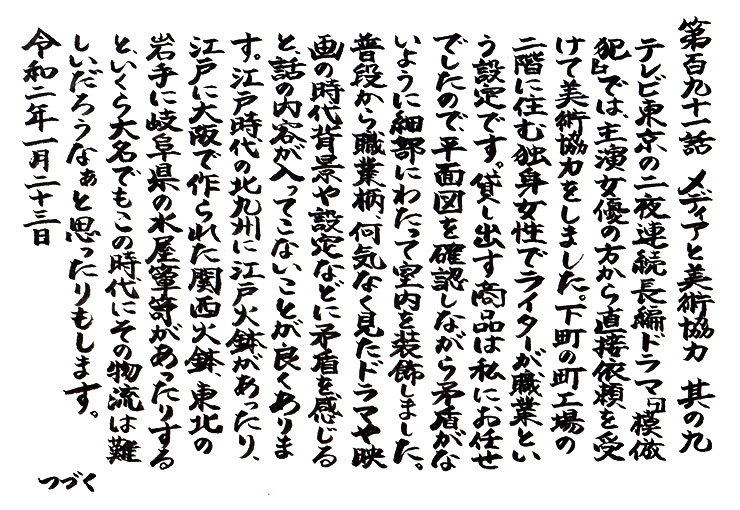 第百九十一話　メディアと美術協力　其の九
テレビ東京の二夜連続長編ドラマ『模倣
犯』では、主演女優の方から直接依頼を受
けて美術協力をしました。下町の町工場の
二階に住む独身女性でライターが職業とい
う設定です。貸し出す商品は私にお任せ
でしたので平面図を確認しながら矛盾がな
いように細部にわたって室内を装飾しました。
普段から職業柄、何気なく見たドラマや映
画の時代背景や設定などに矛盾を感じる
と、話の内容が入ってこないことが良くありま
す。江戸時代の北九州に江戸火鉢があったり、
江戸に大阪で作られた関西火鉢、東北の
岩手に岐阜県の水屋箪笥があったりする
と、いくら大名でもこの時代にその物流は難
しいだろうなぁと思ったりもします。
令和二年一月二十三日
つづく